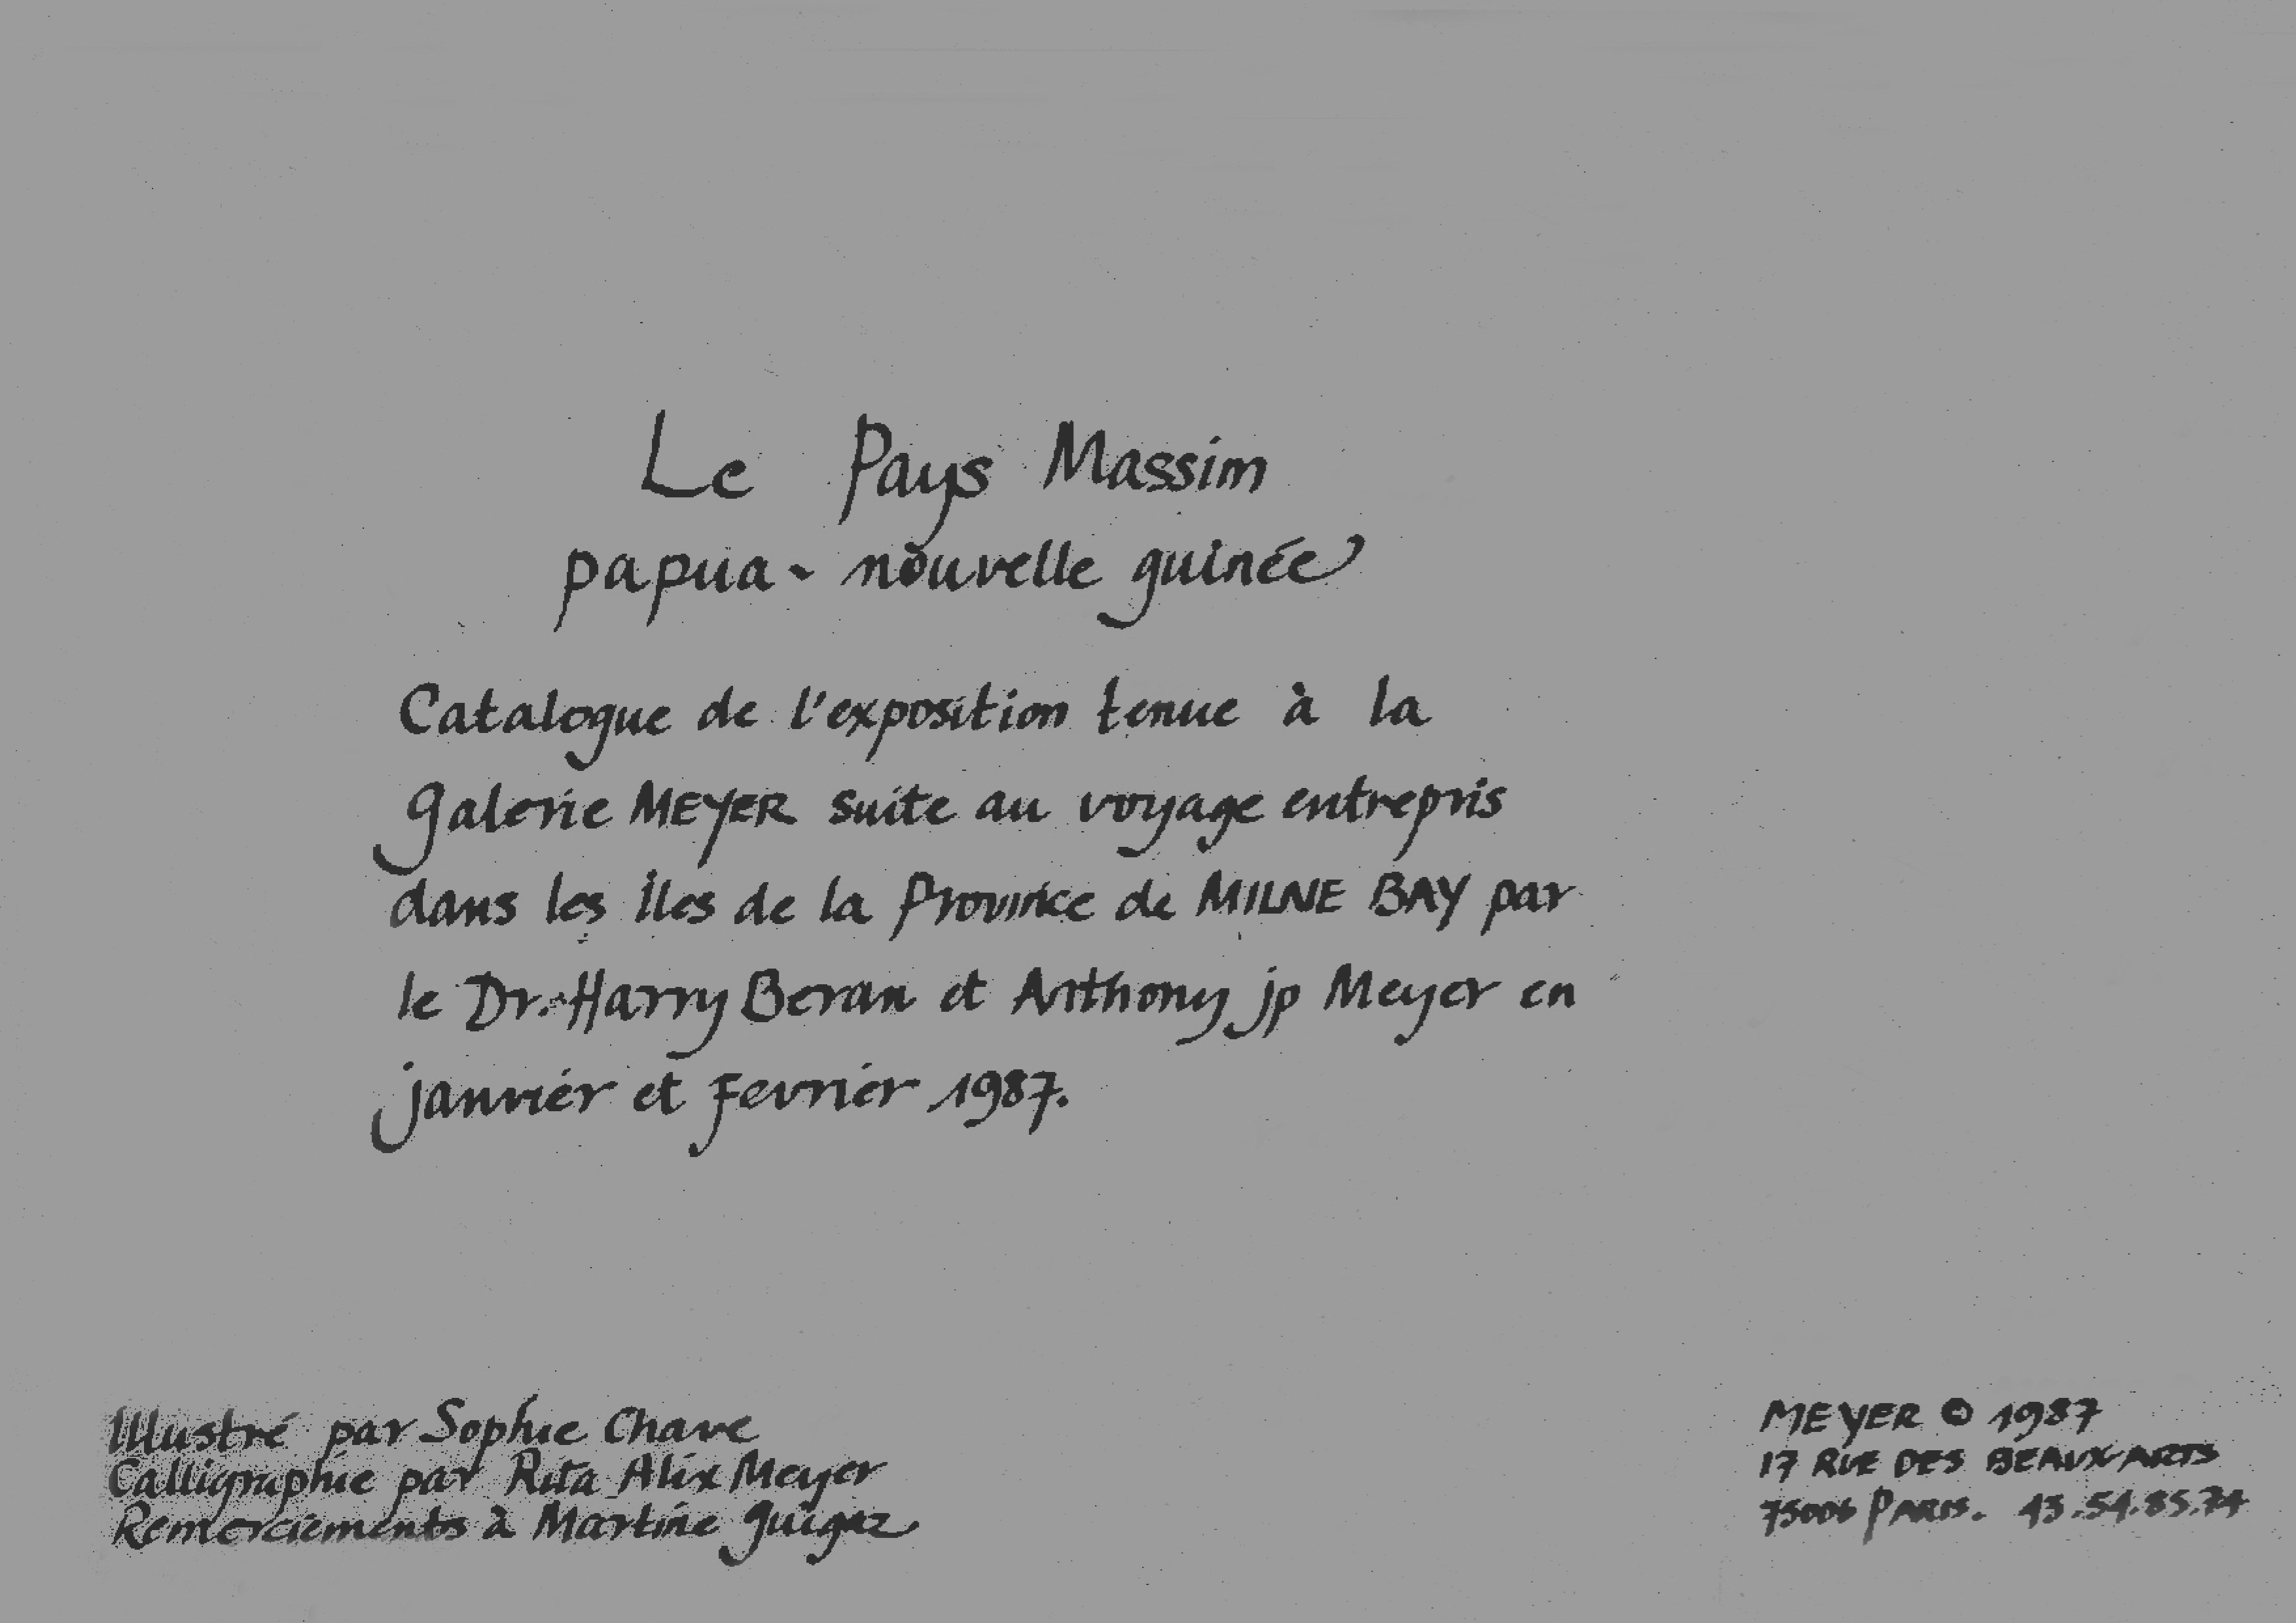 Le Pays Massim
papua - nouvelle guinée
Catalogue de l'exposition tenue à la
galerie MEYER suite au voyage entrepris
dans les îles de la Province de MILNE BAY par
le Dr. Harry Beran et Anthony jp Meyer en
janvier et Fevrier 1987.
Illustré par Sophie Chave
Calligraphie par Rita Alix Meyer
Remerciements à Martine
MEYER © 1987
17 RUE DES BEAUX-ARTS
75006 PARIS. 43.54.85.74